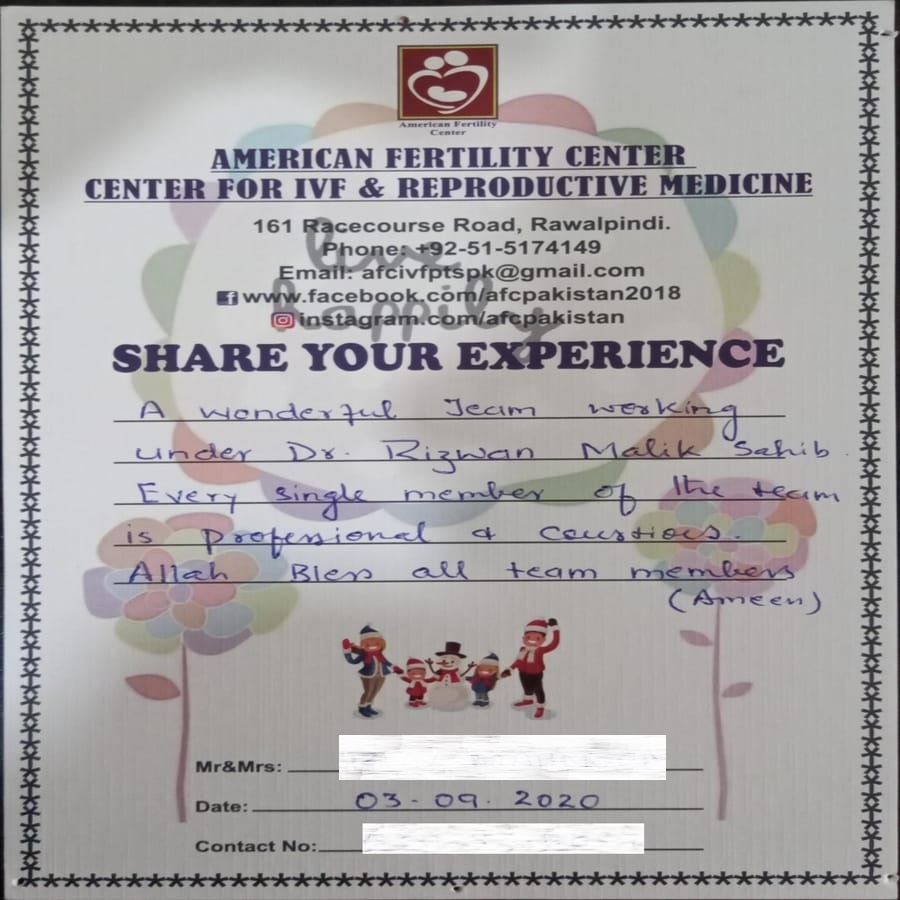 American Fertility
Center
AMERICAN FERTILITY CENTER
CENTER FOR IVF & REPRODUCTIVE MEDICINE
161 Racecourse Road, Rawalpindi.
Phone: +92-51-5174149
Email: afcivfptspk@gmail.com
www.facebook.com/afcpakistan2018
instagram.com/afcpakistan
live
happily
SHARE YOUR EXPERIENCE
A wonderful Team working
under Dr. Rizwan Malik Sahib.
Every single member of the team
is professional & courtious.
Allah Bless all team members
(Ameen)
Mr&Mrs:
Date: 03-09.2020
Contact No: